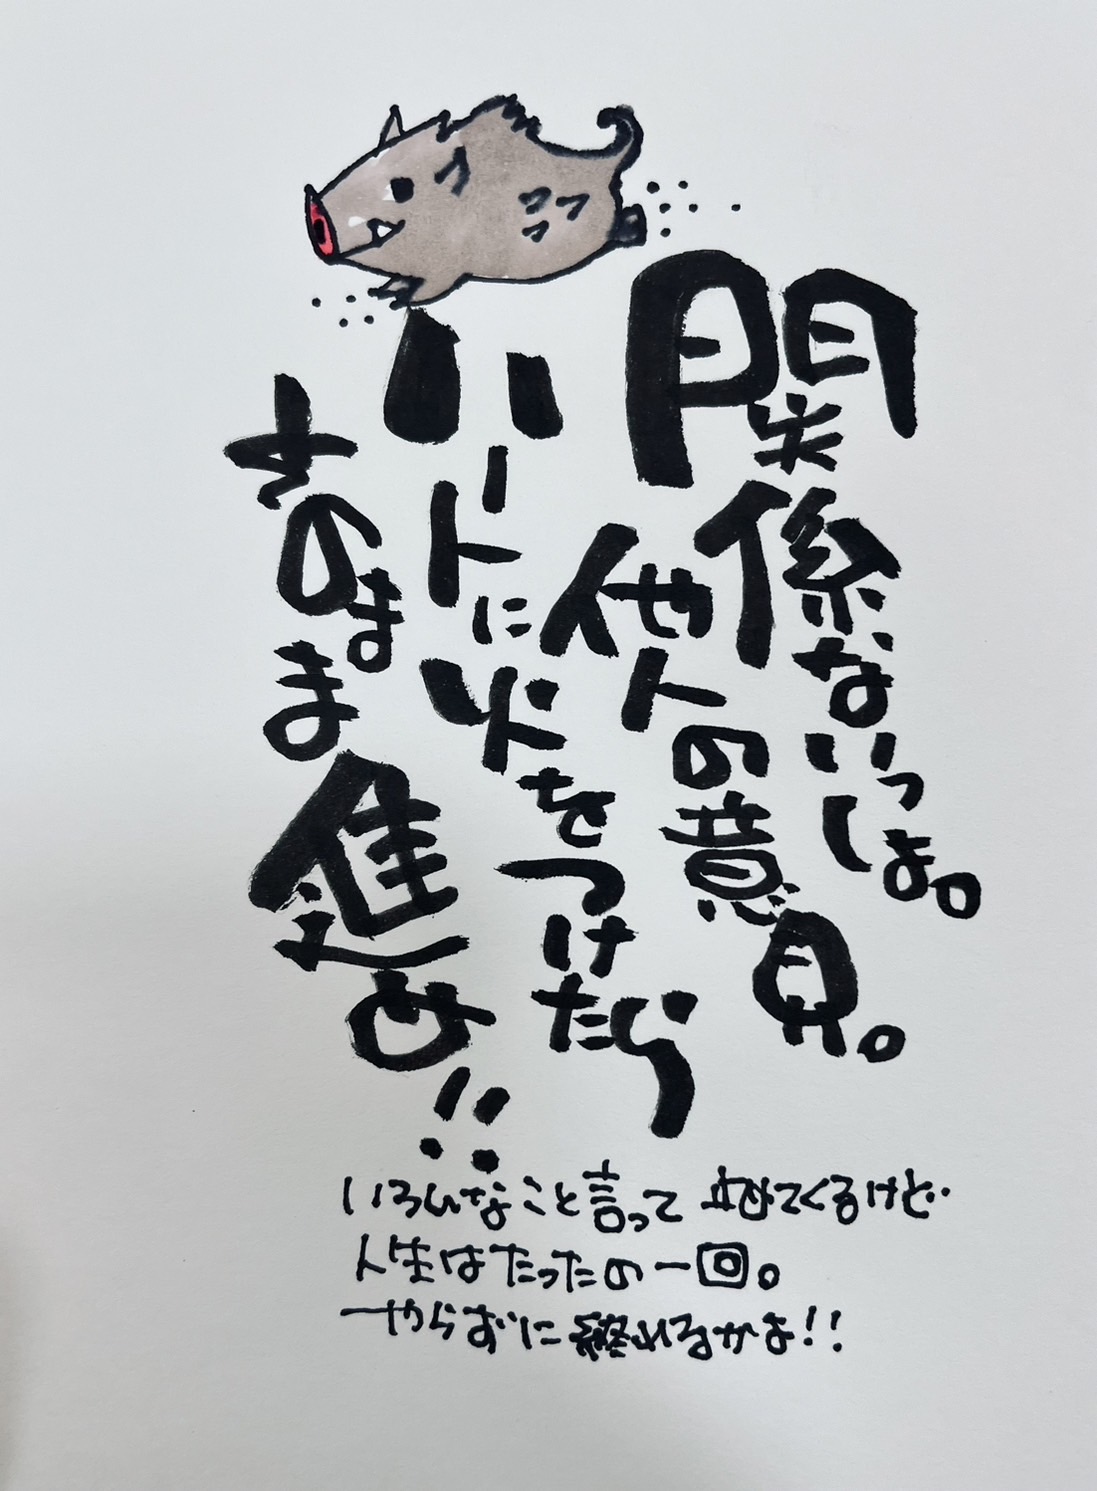 関係ないっしょ。
他人の意見。
ハートに火をつけたら
そのまま進め!!
いろんなこと言って 止めてくるけど‥
人生はたったの一回。
やらずに終われるかよ!!